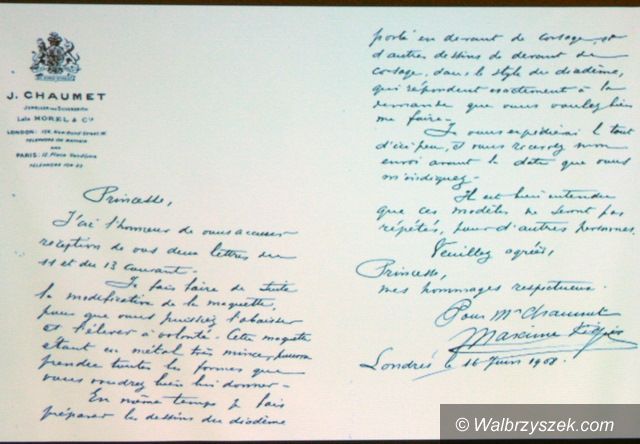 J. CHAUMET
JEWELLER AND SILVERSMITH
Late MOREL & Co
LONDON: 154, New Bond Street W.
TELEPHONE
AND
PARIS: 12, Place Vendôme
TELEPHONE
Princesse,
J'ai l'honneur de vous accuser
réception de vos deux lettres du
11 et du 13 courant.-
Je fais faire de suite
la modification de la maquette,
pour que vous puissiez l'abaisser
et l'élever à volonté. Cette maquette
étant en métal très mince, pourra
prendre toutes les formes que
vous voudrez bien lui donner-
En même temps je fais
préparer les dessins du diadème
porté en devant de corsage, et
d'autres dessins de devant de
corsage, dans le style du diadème,
qui répondent exactement à la
demande que vous voulez bien
me faire-
Je vous expédierai le tout
d'ici peu, et vous recevrez mon
envoi avant la date que vous
m'indiquez-
Il est bien entendu
que ces modèles ne seront pas
répétés, pour d'autres personnes.
Veuillez agréer,
Princesse,
mes hommages respectueux.
Pour Mr Chaumet
Maxime
Londres le 16 Juin 1908.
© Walbrzyszek.com